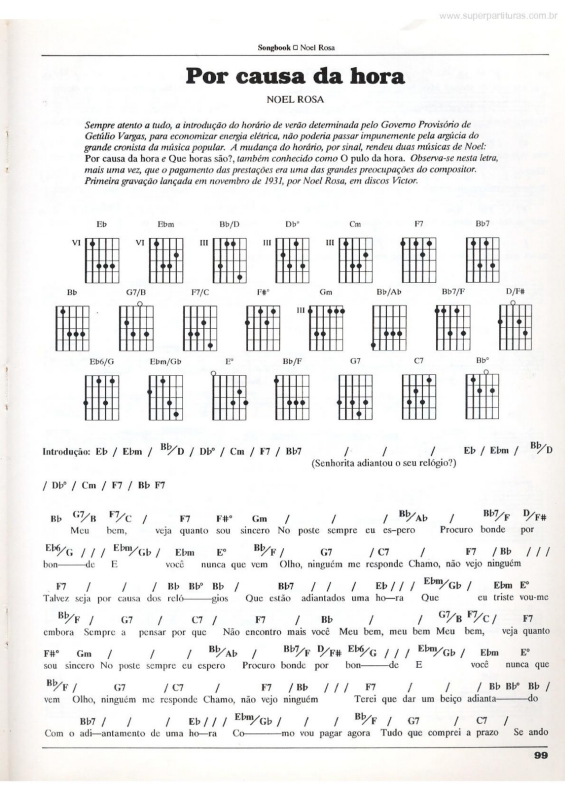 www.superpartituras.com.br
Songbook □ Noel Rosa
Por causa da hora
NOEL ROSA
Sempre atento a tudo, a introdução do horário de verão determinada pelo Governo Provisório de
Getúlio Vargas, para economizar energia elétrica, não poderia passar impunemente pela argúcia do
grande cronista da música popular. A mudança do horário, por sinal, rendeu duas músicas de Noel:
Por causa da hora e Que horas são?, também conhecido como O pulo da hora. Observa-se nesta letra,
mais uma vez, que o pagamento das prestações era uma das grandes preocupações do compositor.
Primeira gravação lançada em novembro de 1931, por Noel Rosa, em discos Victor.
Eb Ebm Bb/D Db° Cm F7 Bb7
VI VI III III III
Bb G7/B F7/C F#° Gm Bb/Ab Bb7/F D/F#
III
Eb6/G Ebm/Gb E° Bb/F G7 C7 Bb°
Introdução: Eb / Ebm / Bb/D / Db° / Cm / F7 / Bb7 / / / Eb / Ebm / Bb/D
(Senhorita adiantou o seu relógio?)
/ Db° / Cm / F7 / Bb F7
Bb G7/B F7/C / F7 F#° Gm / / / Bb/Ab / Bb7/F D/F#
Meu bem, veja quanto sou sincero No poste sempre eu es-pero Procuro bonde por
Eb6/G / / / Ebm/Gb / Ebm E° Bb/F / G7 / C7 / F7 / Bb / / /
bon——de E você nunca que vem Olho, ninguém me responde Chamo, não vejo ninguém
F7 / / / Bb Bb° Bb / Bb7 / / / Eb / / / Ebm/Gb / Ebm E°
Talvez seja por causa dos reló——gios Que estão adiantados uma ho—ra Que eu triste vou-me
Bb/F / G7 / C7 / F7 / Bb / / G7/B F7/C / F7
embora Sempre a pensar por que Não encontro mais você Meu bem, meu bem Meu bem, veja quanto
F#° Gm / / / Bb/Ab / Bb7/F D/F# Eb6/G / / / Ebm/Gb / Ebm E°
sou sincero No poste sempre eu espero Procuro bonde por bon——de E você nunca que
Bb/F / G7 / C7 / F7 / Bb / / / F7 / / / Bb Bb° Bb /
vem Olho, ninguém me responde Chamo, não vejo ninguém Terei que dar um beiço adianta——do
Bb7 / / / Eb / / / Ebm/Gb / / / Bb/F / G7 / C7 /
Com o adi—antamento de uma ho—ra Co——mo vou pagar agora Tudo que comprei a prazo Se ando
99